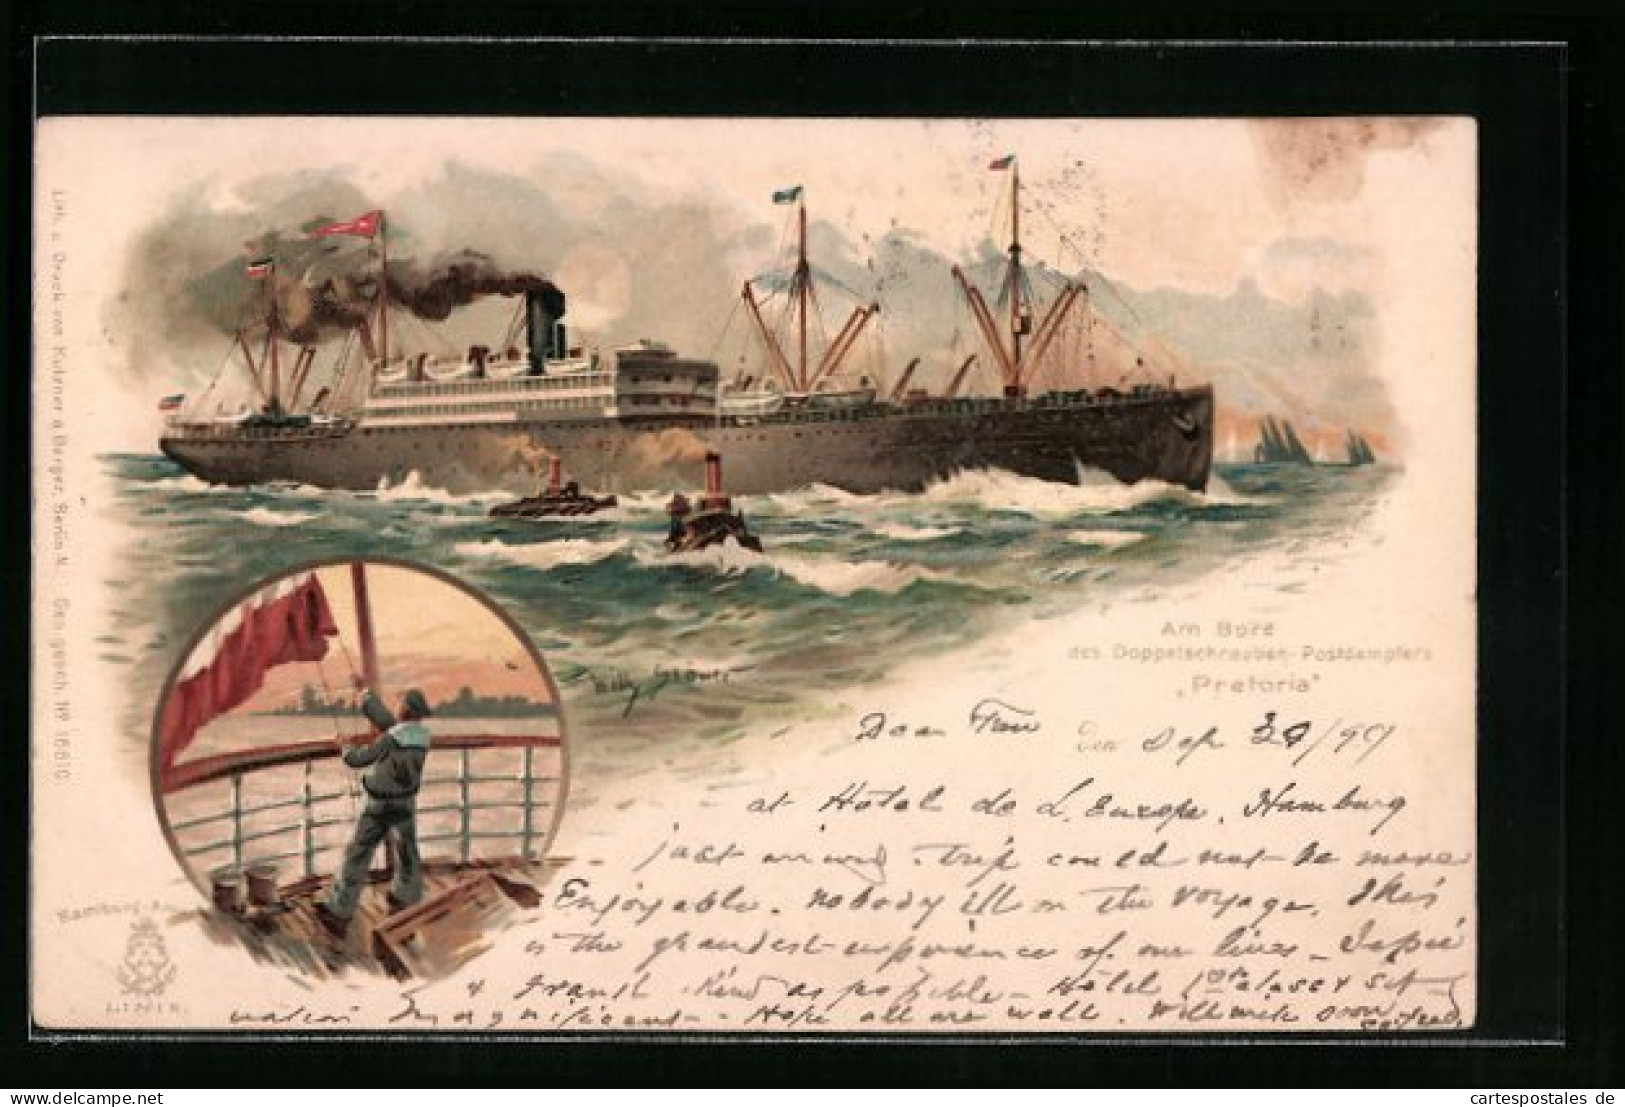 Lith. u. Druck von Kutzner u. Berger, Berlin N. Ges. gesch. No 16610.
Willy Stöwer
Am Bord
des Doppelschrauben-Postdampfers
„Pretoria"
Dear den Sep 30/99
at Hotel de L. Europe, Hamburg
just arrived. trip could not be more
Enjoyable. nobody ill on the voyage. This
is the grandest experience of our lives –
& Frank kind as possible – Hotel 1st class & sit-
uation Magnificent – Hope all are well. Will write soon
Hamburg-A
LINIE
cartespostales de